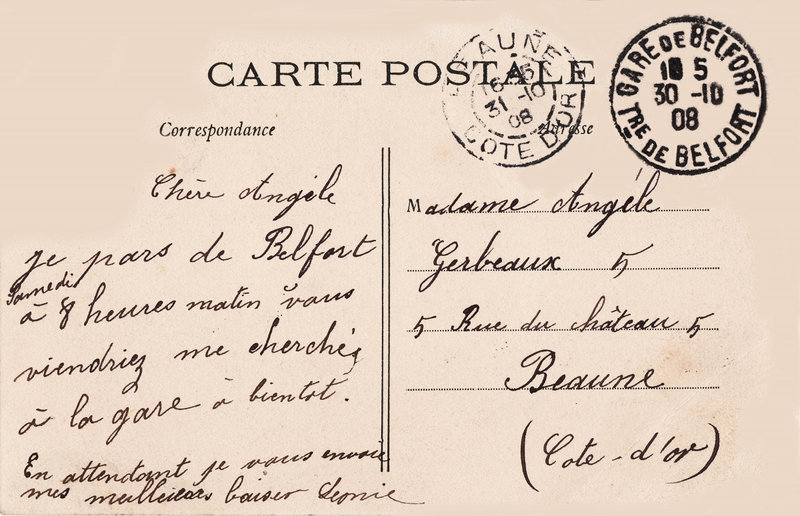 CARTE POSTALE
BEAUNE
16-45
31-10
08
COTE D'OR
GARE DE BELFORT
18 5
30-10
08
TRE DE BELFORT
Correspondance
Adresse
Chère Angèle
je pars de Belfort
Samedi
à 8 heures matin vous
viendriez me cherchez
à la gare à bientot.
En attendant je vous envoie
mes meilleures baiser Leonie
Madame Angéle
Gerbeaux 5
5 Rue du château 5
Beaune
(Cote-d'or)